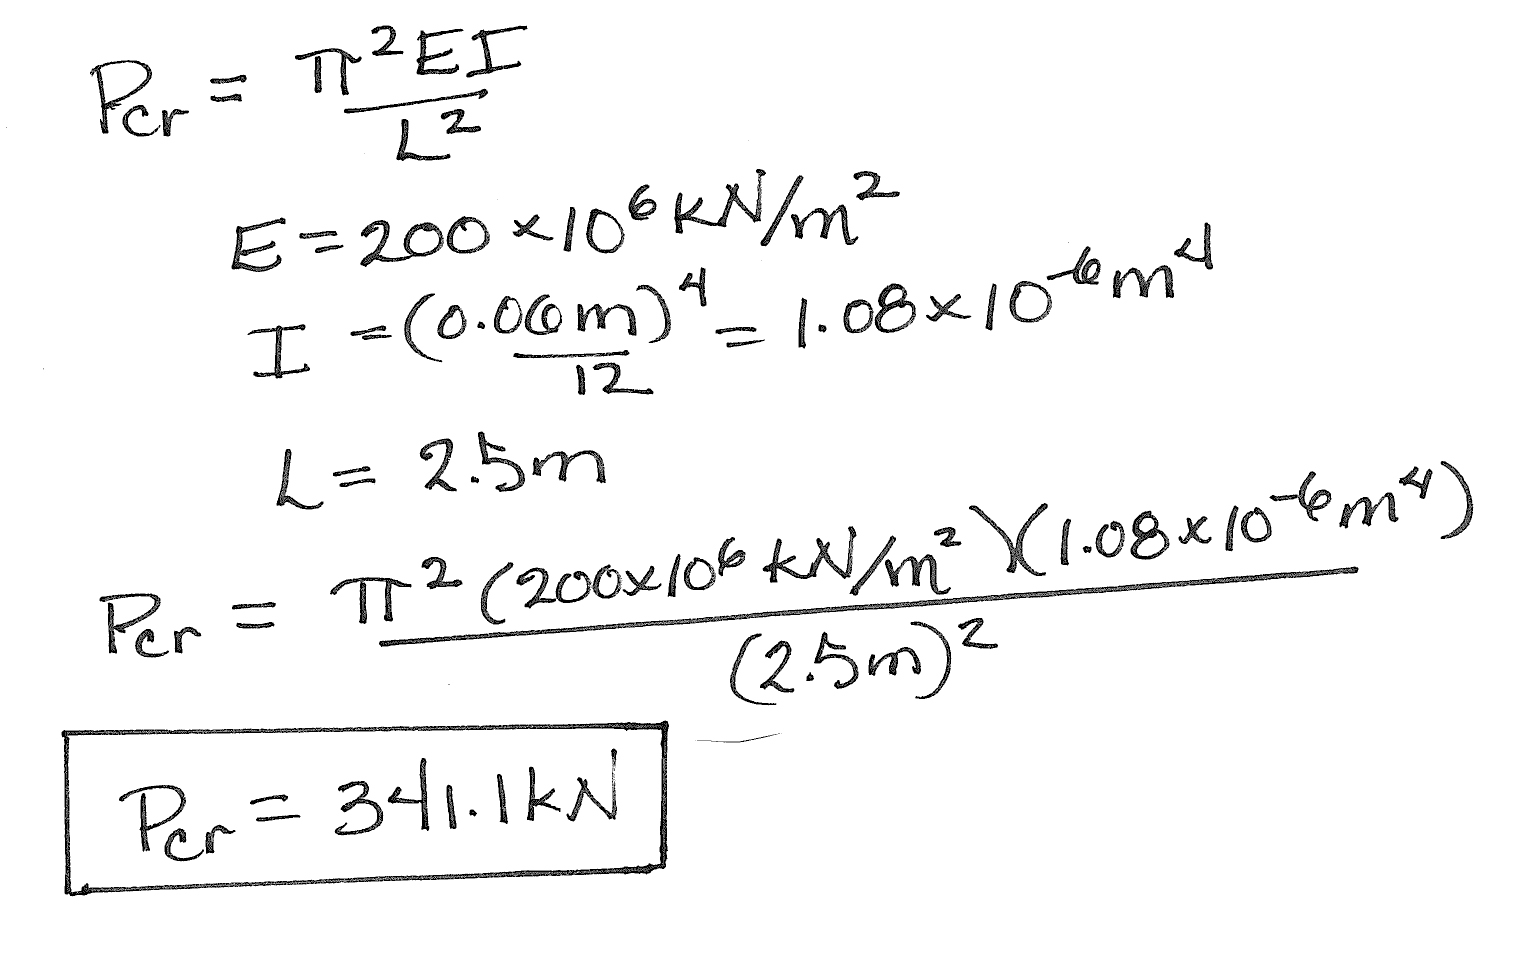 Pcr = π²EI / L²
E = 200 × 10⁶ kN/m²
I = (0.06m)⁴ / 12 = 1.08 × 10⁻⁶ m⁴
L = 2.5m
Pcr = π² (200×10⁶ kN/m²)(1.08 × 10⁻⁶ m⁴) / (2.5m)²
Pcr = 341.1kN